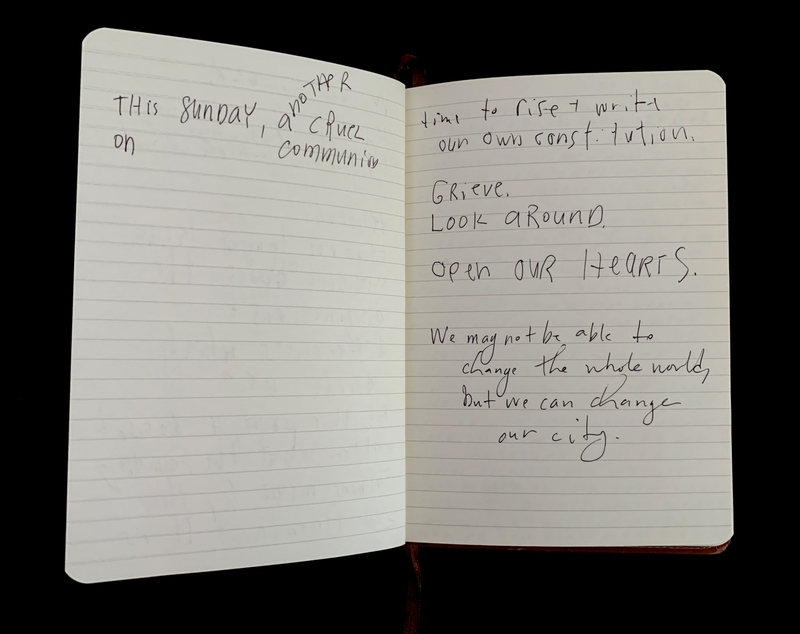 THis SUNDAY, aNOTHER CRUEL
on communion
time to rise + write
our own constitution.
GRieve.
LOOK aROUND.
open OUR HeARTS.
We may not be able to
change the whole world,
but we can change
our city.